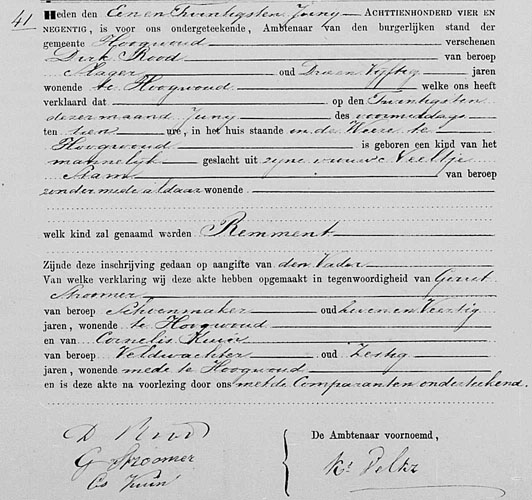 41
Heden den Een en Twintigsten Juny ACHTTIENHONDERD VIER EN
NEGENTIG, is voor ons ondergeteekende, Ambtenaar van den burgerlijken stand der
gemeente Hoogwoud verschenen
Dirk Rood van beroep
Slager oud Drie en Vijftig jaren
wonende te Hoogwoud welke ons heeft
verklaard dat op den Twintigsten
dezer maand Juny des voormiddags
ten tien ure, in het huis staande in de Weere te
Hoogwoud is geboren een kind van het
mannelijk geslacht uit zijne vrouw Neeltje
Stam van beroep
zonder mede aldaar wonende
welk kind zal genaamd worden Remment
Zijnde deze inschrijving gedaan op aangifte van den Vader
Van welke verklaring wij deze akte hebben opgemaakt in tegenwoordigheid van Gerret
Stroomer
van beroep Schoenmaker oud Zeven en Veertig
jaren, wonende te Hoogwoud
en van Cornelis Kuin
van beroep Veldwachter oud Zestig
jaren, wonende mede te Hoogwoud
en is deze akte na voorlezing door ons met de Comparanten onderteekend.
D Rood
G Stroomer
Cs Kuin
De Ambtenaar voornoemd,